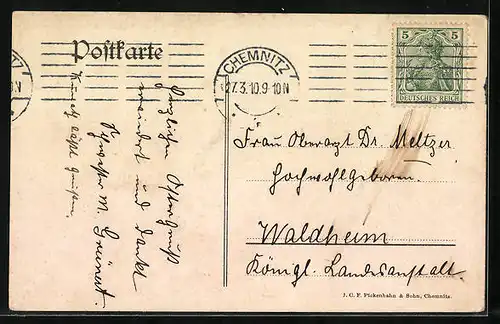 Postkarte
CHEMNITZ
27.3.10.9-10N
5 5
DEUTSCHES REICH
Herzlichen Ostergruß
und dankt
Schwester M. Grünert.
läßt grüßen.
Frau Oberarzt Dr. Meltzer
Hochwohlgeboren.
Waldheim
Königl. Landesanstalt.
J. C. F. Pickenhahn & Sohn, Chemnitz.